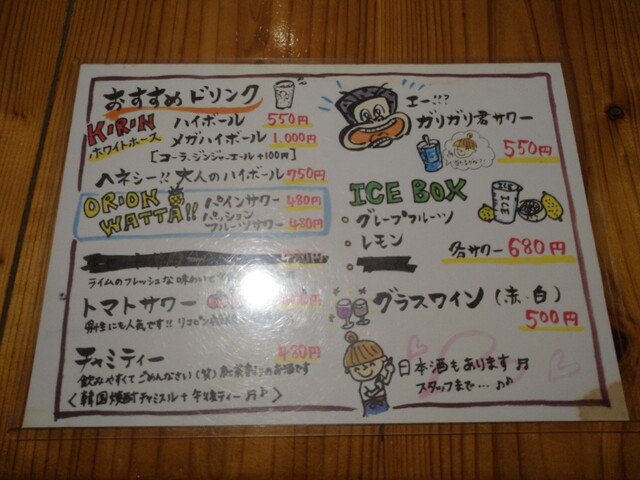 おすすめドリンク
KIRIN ハイボール 550円
ホワイトホース メガハイボール 1,000円
[コーラ、ジンジャーエール+100円]
ヘネシー!! 大人のハイボール 750円
ORION WATTA!!
パインサワー 480円
パッションフルーツサワー 480円
ライムのフレッシュな味わい
トマトサワー
男性にも人気です!! リコピン
チャミティー 480円
飲みやすくてごめんなさい(笑) のお酒です
〈韓国焼酎チャミスル+午後ティー♬♪〉
エー!!?
ガリガリ君サワー
550円
ICE BOX
ICE
・グレープフルーツ
・レモン
各サワー 680円
グラスワイン(赤・白)
500円
日本酒もあります♬
スタッフまで…♪♪